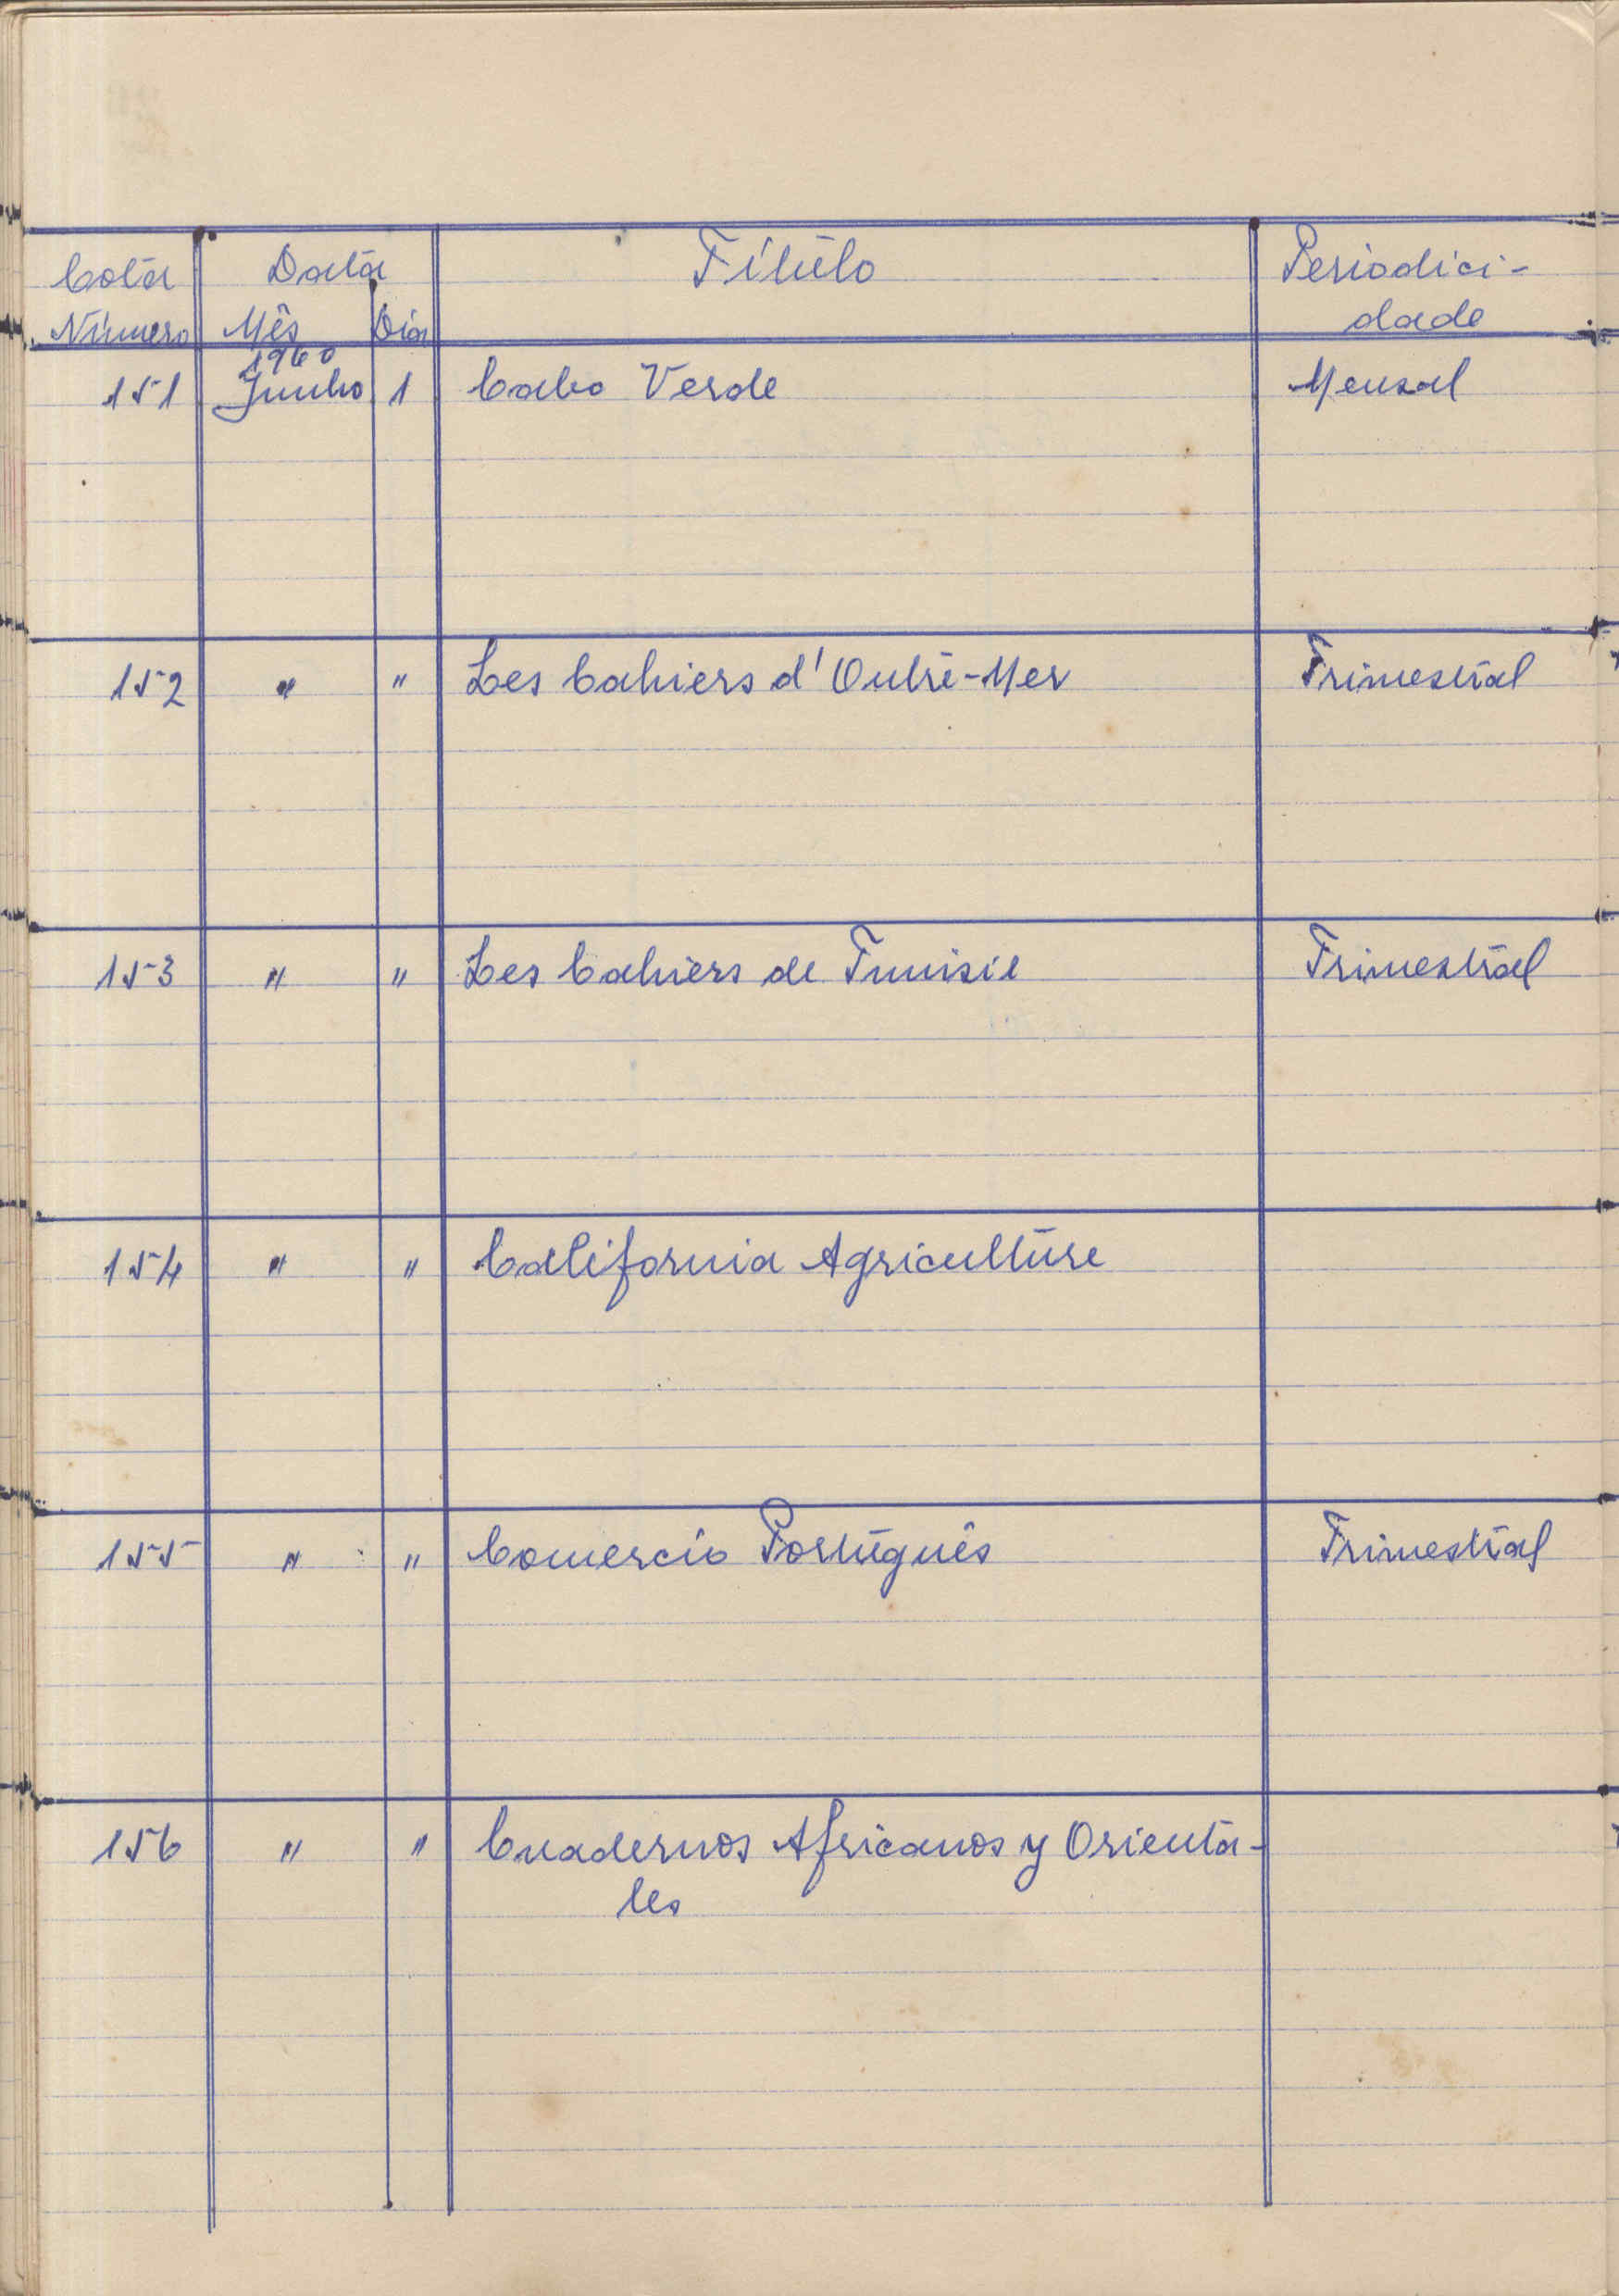 Cota Data Título Periodici-
Número Mês Dia dade
1960
151 Junho 1 Cabo Verde Mensal
152 " " Les Cahiers d'Outre-Mer Trimestral
153 " " Les Cahiers de Tunisie Trimestral
154 " " California Agriculture
155 " " Comercio Português Trimestral
156 " " Cuadernos Africanos y Orienta-
les